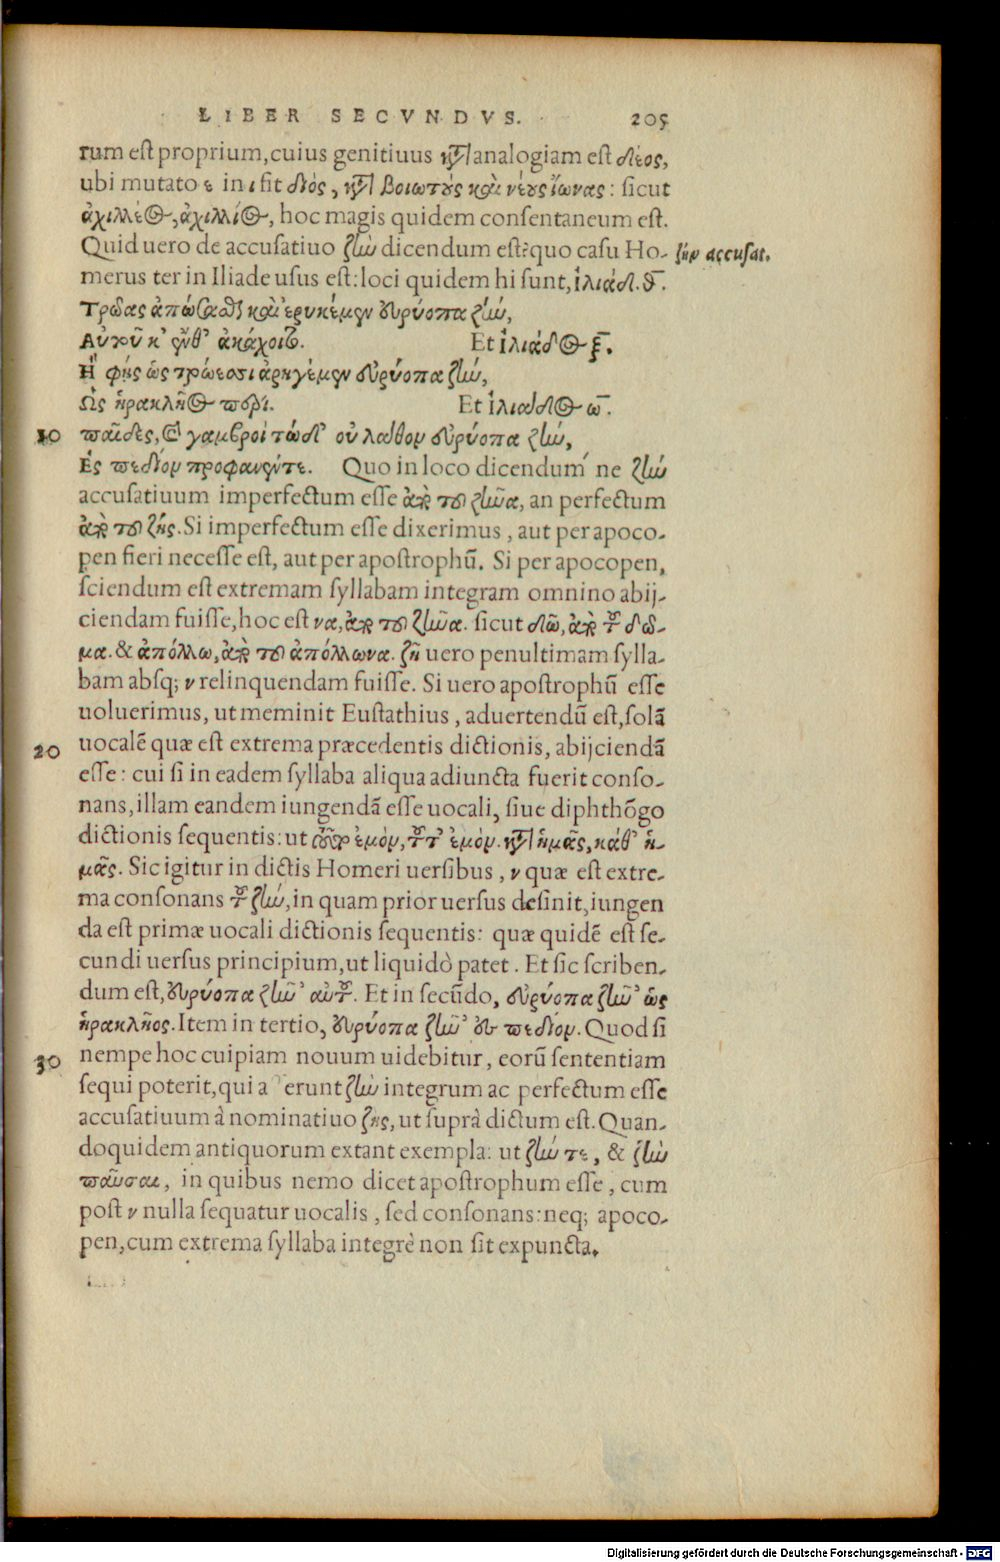 LIBER SECVNDVS. 205
rum est proprium, cuius genitiuus κατ' analogiam est δέος,
ubi mutato ε in ι fit διός, κατὰ βοιωτοὺς καὶ νέους ἴωνας: sicut
ἀχιλλέος, ἀχιλλίος, hoc magis quidem consentaneum est.
Quid uero de accusatiuo ζὼ dicendum est? quo casu Ho-
ζην accusat.
merus ter in Iliade usus est: loci quidem hi sunt, ἰλιάδ. θ.
Τρῶας ἀπώσασθαι καὶ ἐρυκέμεν εὐρύοπα ζὴν,
Αὐτοῦ κ' ἔνθ' ἀκάχοιτο. Et ἰλιάδος ξ.
Ἢ φῂς ὡς τρώεσσι ἀρηγέμεν εὐρύοπα ζὴν,
Ὡς ἡρακλῆος περι. Et ἰλιάδος ω.
10 παῖδες, καὶ γαμβροὶ τὼ δ' οὐ λάθον εὐρύοπα ζὴν,
Ἐς πεδίον προφανέντε. Quo in loco dicendum ne ζὴν
accusatiuum imperfectum esse ἀπὸ τοῦ ζῆνα, an perfectum
ἀπὸ τοῦ ζής. Si imperfectum esse dixerimus, aut per apoco-
pen fieri necesse est, aut per apostrophũ. Si per apocopen,
sciendum est extremam syllabam integram omnino abij-
ciendam fuisse, hoc est να, ἀπὸ τοῦ ζῆνα. sicut δῶ, ἀπὸ τοῦ δῶ-
μα. & ἀπόλλω, ἀπὸ τοῦ ἀπόλλωνα. ζῆ uero penultimam sylla-
bam absq; ν relinquendam fuisse. Si uero apostrophũ esse
uoluerimus, ut meminit Eustathius, aduertendũ est, solã
20 uocalẽ quæ est extrema præcedentis dictionis, abijciendã
esse: cui si in eadem syllaba aliqua adiuncta fuerit conso-
nans, illam eandem iungendã esse uocali, siue diphthõgo
dictionis sequentis: ut ἐμόν, τοῦτ' ἐμόν. κατὰ ἡμᾶς, καθ' ἡ-
μᾶς. Sic igitur in dictis Homeri uersibus, ν quæ est extre-
ma consonans τοῦ ζὴν, in quam prior uersus desinit, iungen
da est primæ uocali dictionis sequentis: quæ quidẽ est se-
cundi uersus principium, ut liquidò patet. Et sic scriben-
dum est, εὐρύοπα ζῆν' αὐτοῦ. Et in secũdo, εὐρύοπα ζῆν' ὡς
ἡρακλῆος. Item in tertio, εὐρύοπα ζῆν' ἐς πεδίον. Quod si
30 nempe hoc cuipiam nouum uidebitur, eorũ sententiam
sequi poterit, qui a erunt ζὴν integrum ac perfectum esse
accusatiuum à nominatiuo ζής, ut suprà dictum est. Quan-
doquidem antiquorum extant exempla: ut ζήν τε, & ζὴν
παῦσαι, in quibus nemo dicet apostrophum esse, cum
post ν nulla sequatur uocalis, sed consonans: neq; apoco-
pen, cum extrema syllaba integrè non sit expuncta.
Digitalisierung gefördert durch die Deutsche Forschungsgemeinschaft - DFG